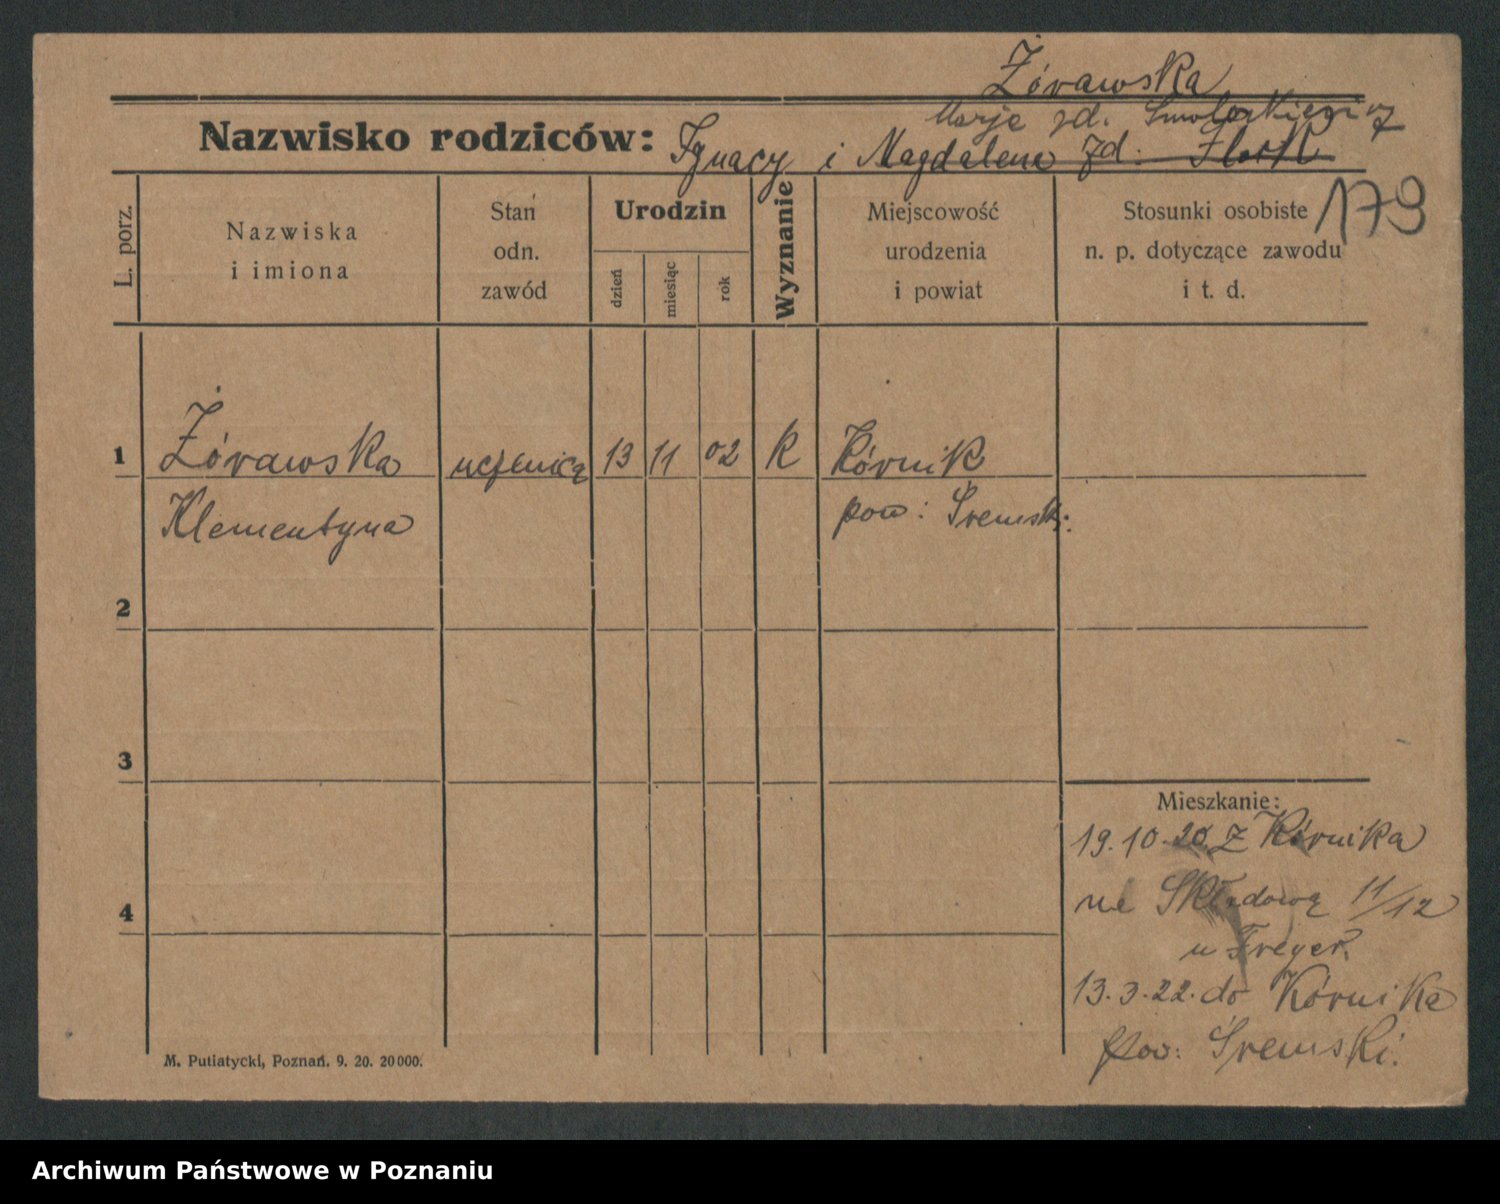 Żórawska
Marje zd. Smolarkiewicz
Nazwisko rodziców: Ignacy i Magdalena zd.
179
L. porz.
Nazwiska
i imiona
Stan
odn.
zawód
Urodzin
dzień
miesiąc
rok
Wyznanie
Miejscowość
urodzenia
i powiat
Stosunki osobiste
n. p. dotyczące zawodu
i t. d.
1 Żórawska uczenica 13 11 02 K Kórnik
Klementyna pow: Śremski.
2
3
Mieszkanie:
19.10.20. z Kórnika
4
na Składową 11/12
u Freyer.
13.3.22. do Kórnika
pow: Śremski.
M. Putiatycki, Poznań. 9. 20. 20000.
Archiwum Państwowe w Poznaniu